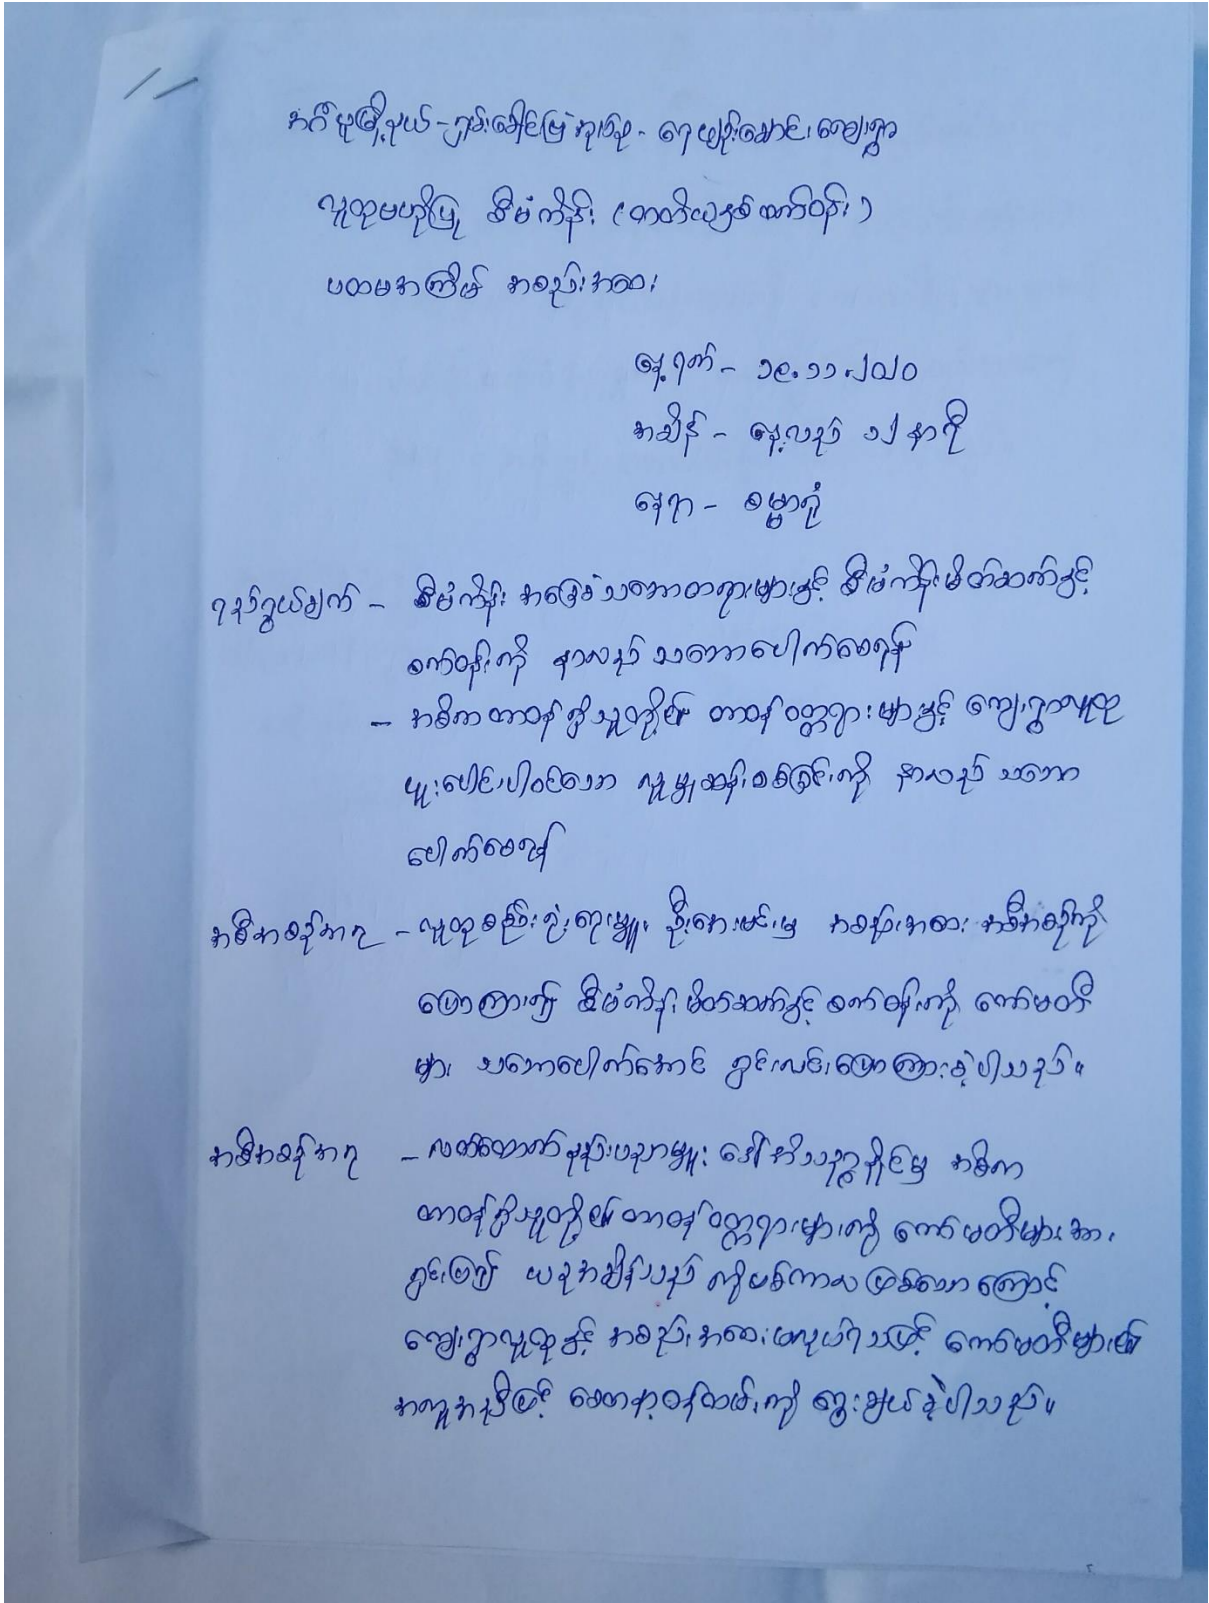 အင်္ဂပူမြို့နယ် - ရှမ်းခေါင်မြဲအုပ်စု - ရေပျဉ်းဆောင်းကျေးရွာ
လူထုဗဟိုပြု စီမံကိန်း (တတိယနှစ်စက်ဝန်း)
ပထမအကြိမ် အစည်းအဝေး
နေ့ရက် - ၁၉.၁၁.၂၀၂၀
အချိန် - နေ့လည် ၁၂ နာရီ
နေရာ - ဓမ္မာရုံ
ရည်ရွယ်ချက် - စီမံကိန်း အခြေခံသဘောတရားများနှင့် စီမံကိန်းမိတ်ဆက်နှင့်
စက်ဝန်းကို နားလည် သဘောပေါက်စေရန်
- အဓိကတာဝန်ရှိသူတို့၏ တာဝန်ဝတ္တရားများနှင့် ကျေးရွာလူထု
ပူးပေါင်းပါဝင်သော လူမှုဆန်းစစ်ခြင်းကို နားလည် သဘော
ပေါက်စေရန်
အစီအစဉ်အရ - လူထုစည်းရုံးရေးမှူး ဦးအေးမင်းမှ အစည်းအဝေး အစီအစဉ်ကို
ပြောကြား၍ စီမံကိန်းမိတ်ဆက်နှင့် စက်ဝန်းကို ကော်မတီ
များ သဘောပေါက်အောင် ရှင်းလင်းပြောကြားခဲ့ပါသည်။
အစီအစဉ်အရ - လက်ထောက်နည်းပညာမှူး ဒေါ် မှ အဓိက
တာဝန်ရှိသူတို့၏ တာဝန်ဝတ္တရားများကို ကော်မတီများအား
ရှင်းပြ၍ ယခုအချိန်သည် ကိုဗစ်ကာလဖြစ်သောကြောင့်
ကျေးရွာလူထုနှင့် အစည်းအဝေးမလုပ်ရသဖြင့် ကော်မတီများ၏
အကူအညီဖြင့် စေတနာ့ဝန်ထမ်းကို ရွေးချယ်ခဲ့ပါသည်။